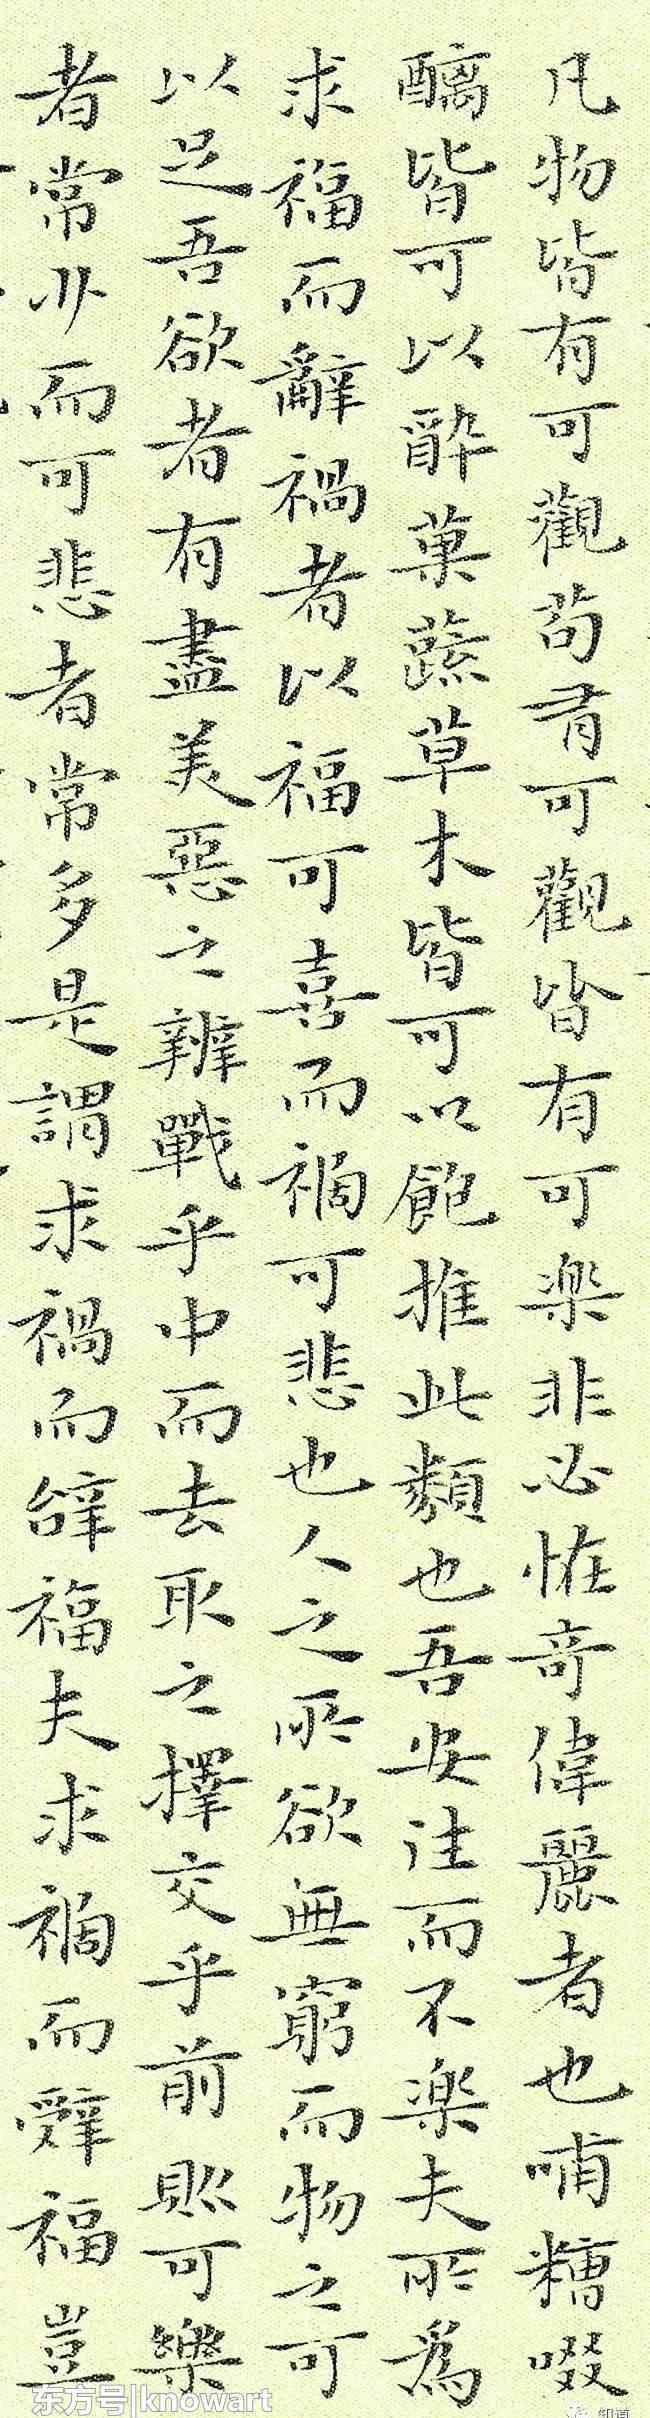 凡物皆有可觀苟有可觀皆有可楽非必恠竒偉麗者也哺糟啜
醨皆可以醉菓蔬草木皆可以飽推此類也吾安往而不楽夫所爲
求福而辭禍者以福可喜而禍可悲也人之所欲無窮而物之可
以足吾欲者有盡美惡之辨戰乎中而去取之擇交乎前則可樂
者常少而可悲者常多是謂求禍而辭福夫求禍而辭福豈
东方号|knowart
知道